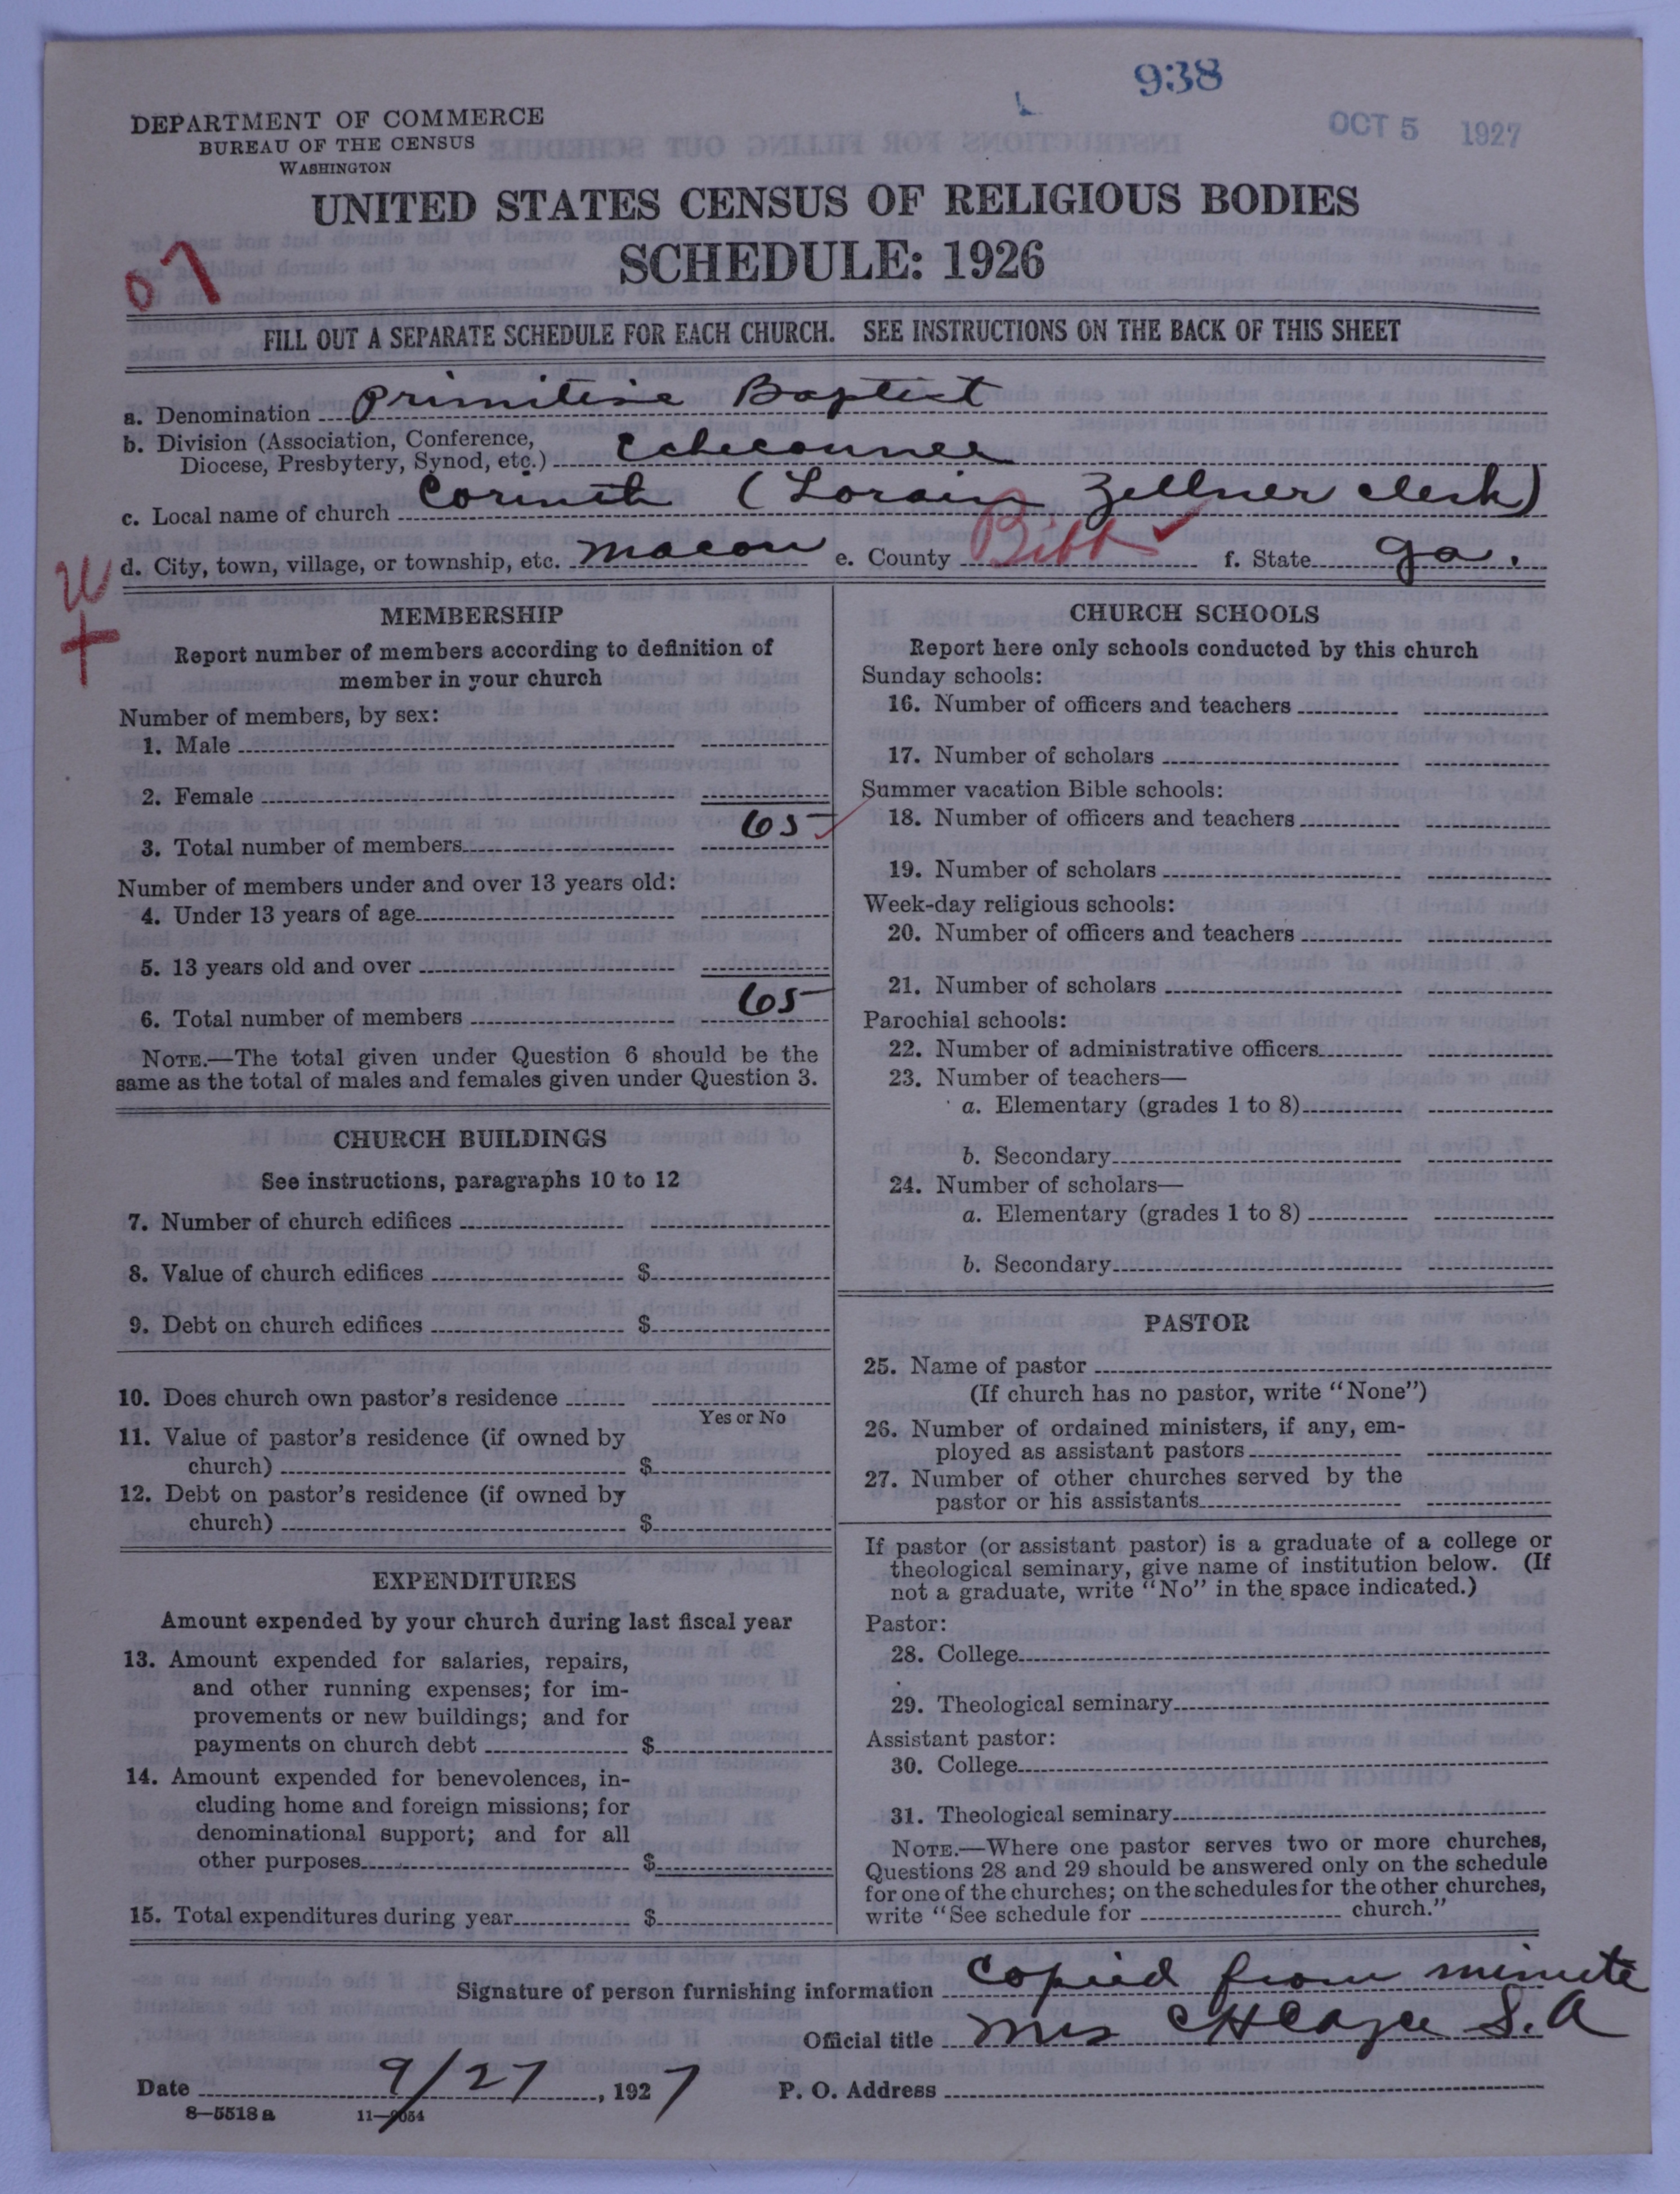 938
OCT 5 1927
DEPARTMENT OF COMMERCE
BUREAU OF THE CENSUS
WASHINGTON
UNITED STATES CENSUS OF RELIGIOUS BODIES
SCHEDULE: 1926
07
FILL OUT A SEPARATE SCHEDULE FOR EACH CHURCH. SEE INSTRUCTIONS ON THE BACK OF THIS SHEET
a. Denomination Primitive Baptist
b. Division (Association, Conference,
Diocese, Presbytery, Synod, etc.) Echeconnee
c. Local name of church Corinth (Lorain Zellner clerk)
d. City, town, village, or township, etc. Macon e. County Bibb f. State Ga.
W
+
MEMBERSHIP
Report number of members according to definition of
member in your church
Number of members, by sex:
1. Male
2. Female
3. Total number of members 65
Number of members under and over 13 years old:
4. Under 13 years of age
5. 13 years old and over
6. Total number of members 65
NOTE.—The total given under Question 6 should be the
same as the total of males and females given under Question 3.
CHURCH BUILDINGS
See instructions, paragraphs 10 to 12
7. Number of church edifices
8. Value of church edifices $
9. Debt on church edifices $
10. Does church own pastor's residence
Yes or No
11. Value of pastor's residence (if owned by
church) $
12. Debt on pastor's residence (if owned by
church) $
EXPENDITURES
Amount expended by your church during last fiscal year
13. Amount expended for salaries, repairs,
and other running expenses; for im-
provements or new buildings; and for
payments on church debt $
14. Amount expended for benevolences, in-
cluding home and foreign missions; for
denominational support; and for all
other purposes $
15. Total expenditures during year $
CHURCH SCHOOLS
Report here only schools conducted by this church
Sunday schools:
16. Number of officers and teachers
17. Number of scholars
Summer vacation Bible schools:
18. Number of officers and teachers
19. Number of scholars
Week-day religious schools:
20. Number of officers and teachers
21. Number of scholars
Parochial schools:
22. Number of administrative officers
23. Number of teachers—
a. Elementary (grades 1 to 8)
b. Secondary
24. Number of scholars—
a. Elementary (grades 1 to 8)
b. Secondary
PASTOR
25. Name of pastor
(If church has no pastor, write "None")
26. Number of ordained ministers, if any, em-
ployed as assistant pastors
27. Number of other churches served by the
pastor or his assistants
If pastor (or assistant pastor) is a graduate of a college or
theological seminary, give name of institution below. (If
not a graduate, write "No" in the space indicated.)
Pastor:
28. College
29. Theological seminary
Assistant pastor:
30. College
31. Theological seminary
NOTE.—Where one pastor serves two or more churches,
Questions 28 and 29 should be answered only on the schedule
for one of the churches; on the schedules for the other churches,
write "See schedule for church."
Signature of person furnishing information copied from minute
Official title Mrs C H S. A
Date 9/27, 1927 P. O. Address
8—5518 a 11—9054